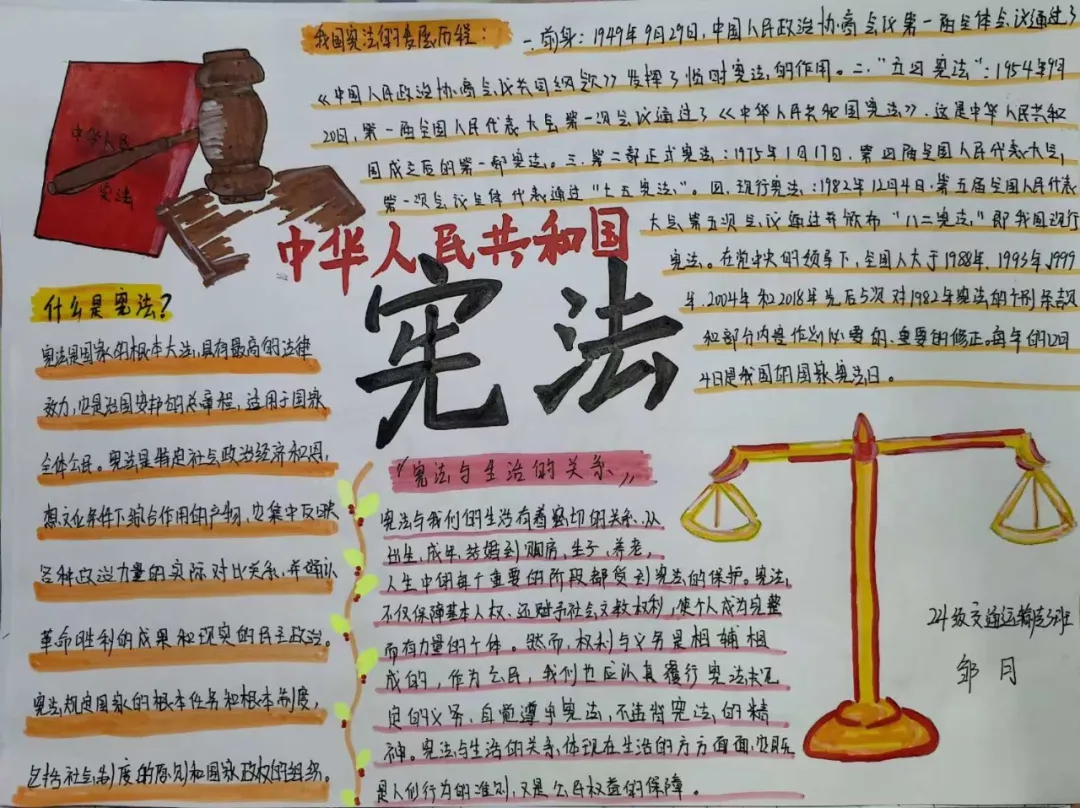 中华人民
宪法
我国宪法的发展历程：
一.前身：1949年9月29日，中国人民政治协商会议第一届全体会议通过了
《中国人民政治协商会议共同纲领》发挥了临时宪法的作用。二、"五四宪法"：1954年9月
20日，第一届全国人民代表大会第一次会议通过了《中华人民共和国宪法》，这是中华人民共和
国成立后的第一部宪法。三.第二部正式宪法：1975年1月17日.第四届全国人民代表大会，
第一次会议全体代表通过"七五宪法"。四.现行宪法：1982年12月4日.第五届全国人民代表
大会第五次会议通过并颁布"八二宪法"即我国现行
宪法。在党中央的领导下，全国人大于1988年、1993年、1999
年、2004年和2018年先后5次对1982年宪法的个别条款
和部分内容作出必要的、重要的修正。每年的12月
4日是我国的国家宪法日。
中华人民共和国
宪法
什么是宪法？
宪法是国家的根本大法，具有最高的法律
效力，它是治国安邦的总章程，适用于国家
全体公民。宪法是特定社会政治经济和思
想文化条件下综合作用的产物，它集中反映
各种政治力量的实际对比关系，并确认
革命胜利的成果和现实的民主政治。
宪法规定国家的根本任务和根本制度，
包括社会制度的原则和国家政权的组织。
"宪法与生活的关系"
宪法与我们的生活有着密切的关系.从
出生、成年、结婚到购房、生子、养老，
人生中的每个重要的阶段都受到宪法的保护。宪法，
不仅保障基本人权、还赋予社会文教权利，使个人成为完整
而有力量的个体。然而，权利与义务是相辅相
成的，作为公民，我们也应认真履行宪法规
定的义务，自觉遵守宪法，不违背宪法的精
神。宪法与生活的关系，体现在生活的方方面面，它既
是人们行为的准则，又是公民权益的保障。
24级交通运输5班
邹月